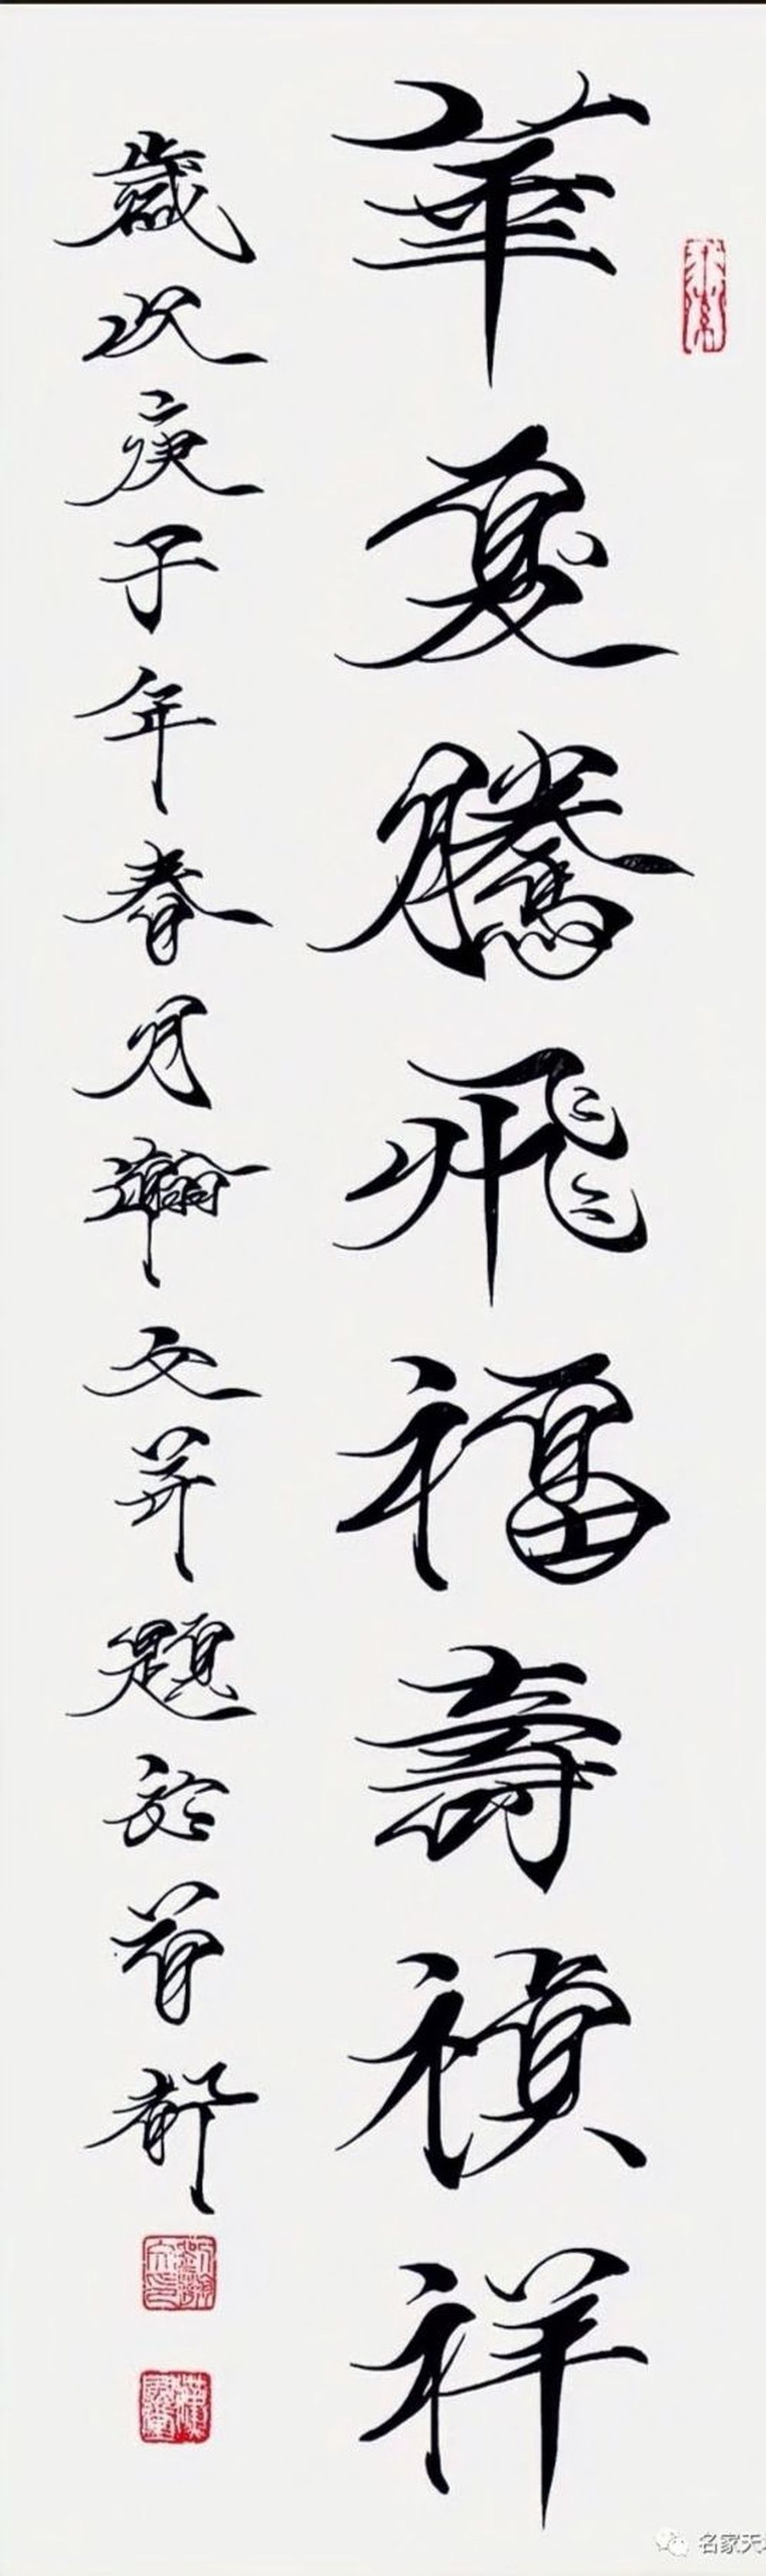 華夏騰飛福壽禎祥
歲次庚子年春月瀚文并題於首都
名家天